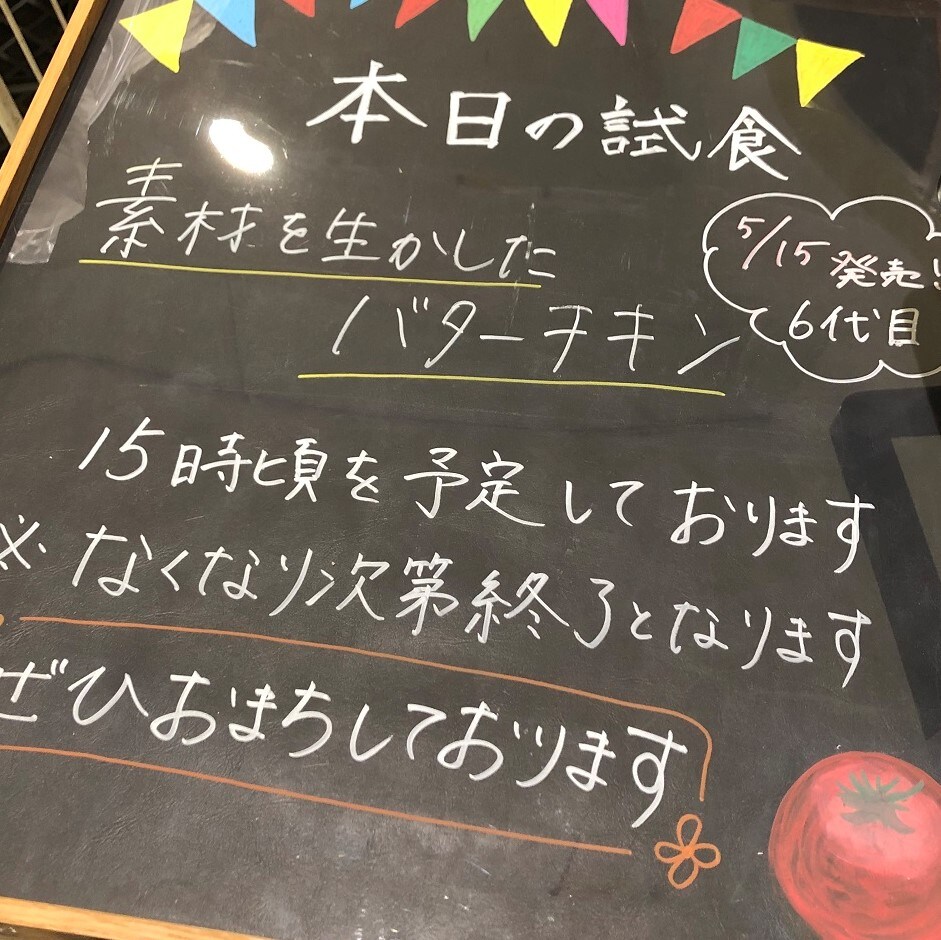 本日の試食
素材を生かした
バターチキン
5/15発売!
6代目
15時頃を予定しております
※なくなり次第終了となります
ぜひおまちしております